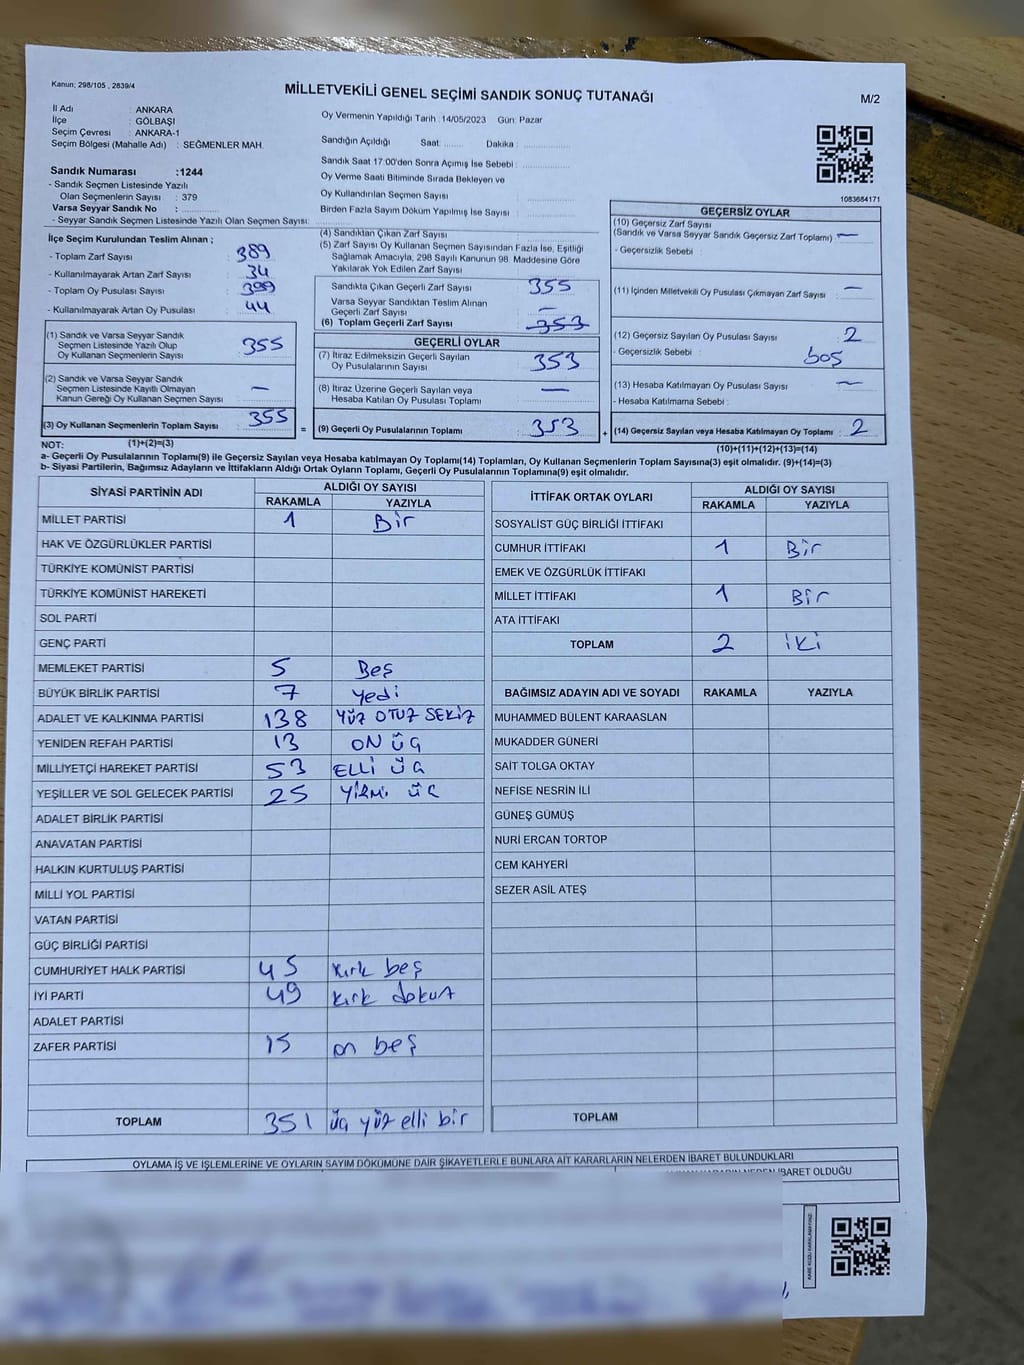 Kanun; 298/105 , 2839/4
MİLLETVEKİLİ GENEL SEÇİMİ SANDIK SONUÇ TUTANAĞI
M/2
İl Adı : ANKARA
İlçe : GÖLBAŞI
Seçim Çevresi : ANKARA-1
Seçim Bölgesi (Mahalle Adı) : SEĞMENLER MAH.
Sandık Numarası :1244
- Sandık Seçmen Listesinde Yazılı
Olan Seçmenlerin Sayısı : 379
Varsa Seyyar Sandık No :
- Seyyar Sandık Seçmen Listesinde Yazılı Olan Seçmen Sayısı:
Oy Vermenin Yapıldığı Tarih :14/05/2023 Gün: Pazar
Sandığın Açıldığı Saat: ........ Dakika :
Sandık Saat 17.00'den Sonra Açımış İse Sebebi :
Oy Verme Saati Bitiminde Sırada Bekleyen ve
Oy Kullandırılan Seçmen Sayısı
Birden Fazla Sayım Döküm Yapılmış İse Sayısı :
1083684171
İlçe Seçim Kurulundan Teslim Alınan ;
- Toplam Zarf Sayısı : 389
- Kullanılmayarak Artan Zarf Sayısı : 34
- Toplam Oy Pusulası Sayısı : 399
- Kullanılmayarak Artan Oy Pusulası : 44
(1) Sandık ve Varsa Seyyar Sandık
Seçmen Listesinde Yazılı Olup
Oy Kullanan Seçmenlerin Sayısı : 355
(2) Sandık ve Varsa Seyyar Sandık
Seçmen Listesinde Kayıtlı Olmayan
Kanun Gereği Oy Kullanan Seçmen Sayısı : —
(3) Oy Kullanan Seçmenlerin Toplam Sayısı : 355
(1)+(2)=(3)
(4) Sandıktan Çıkan Zarf Sayısı
(5) Zarf Sayısı Oy Kullanan Seçmen Sayısından Fazla İse, Eşitliği
Sağlamak Amacıyla, 298 Sayılı Kanunun 98. Maddesine Göre
Yakılarak Yok Edilen Zarf Sayısı
Sandıkta Çıkan Geçerli Zarf Sayısı 355
Varsa Seyyar Sandıktan Teslim Alınan
Geçerli Zarf Sayısı —
(6) Toplam Geçerli Zarf Sayısı : 353
GEÇERLİ OYLAR
(7) İtiraz Edilmeksizin Geçerli Sayılan
Oy Pusulalarının Sayısı : 353
(8) İtiraz Üzerine Geçerli Sayılan veya
Hesaba Katılan Oy Pusulası Toplamı : —
= (9) Geçerli Oy Pusulalarının Toplamı : 353
GEÇERSİZ OYLAR
(10) Geçersiz Zarf Sayısı
(Sandık ve Varsa Seyyar Sandık Geçersiz Zarf Toplamı) : —
- Geçersizlik Sebebi :
(11) İçinden Milletvekili Oy Pusulası Çıkmayan Zarf Sayısı : —
(12) Geçersiz Sayılan Oy Pusulası Sayısı : 2
- Geçersizlik Sebebi : boş
(13) Hesaba Katılmayan Oy Pusulası Sayısı : —
- Hesaba Katılmama Sebebi :
+ (14) Geçersiz Sayılan veya Hesaba Katılmayan Oy Toplamı : 2
(10)+(11)+(12)+(13)=(14)
NOT:
a- Geçerli Oy Pusulalarının Toplamı(9) ile Geçersiz Sayılan veya Hesaba katılmayan Oy Toplamı(14) Toplamları, Oy Kullanan Seçmenlerin Toplam Sayısına(3) eşit olmalıdır. (9)+(14)=(3)
b- Siyasi Partilerin, Bağımsız Adayların ve İttifakların Aldığı Ortak Oyların Toplamı, Geçerli Oy Pusulalarının Toplamına(9) eşit olmalıdır.
SİYASİ PARTİNİN ADI ALDIĞI OY SAYISI
RAKAMLA YAZIYLA
MİLLET PARTİSİ 1 Bir
HAK VE ÖZGÜRLÜKLER PARTİSİ
TÜRKİYE KOMÜNİST PARTİSİ
TÜRKİYE KOMÜNİST HAREKETİ
SOL PARTİ
GENÇ PARTİ
MEMLEKET PARTİSİ 5 Beş
BÜYÜK BİRLİK PARTİSİ 7 Yedi
ADALET VE KALKINMA PARTİSİ 138 YÜZ OTUZ SEKİZ
YENİDEN REFAH PARTİSİ 13 ON ÜÇ
MİLLİYETÇİ HAREKET PARTİSİ 53 ELLİ ÜÇ
YEŞİLLER VE SOL GELECEK PARTİSİ 25 YİRMİ ÜÇ
ADALET BİRLİK PARTİSİ
ANAVATAN PARTİSİ
HALKIN KURTULUŞ PARTİSİ
MİLLİ YOL PARTİSİ
VATAN PARTİSİ
GÜÇ BİRLİĞİ PARTİSİ
CUMHURİYET HALK PARTİSİ 45 kırk beş
İYİ PARTİ 49 kırk dokuz
ADALET PARTİSİ
ZAFER PARTİSİ 15 on beş
TOPLAM 351 üç yüz elli bir
İTTİFAK ORTAK OYLARI ALDIĞI OY SAYISI
RAKAMLA YAZIYLA
SOSYALİST GÜÇ BİRLİĞİ İTTİFAKI
CUMHUR İTTİFAKI 1 Bir
EMEK VE ÖZGÜRLÜK İTTİFAKI
MİLLET İTTİFAKI 1 Bir
ATA İTTİFAKI
TOPLAM 2 iki
BAĞIMSIZ ADAYIN ADI VE SOYADI RAKAMLA YAZIYLA
MUHAMMED BÜLENT KARAASLAN
MUKADDER GÜNERİ
SAİT TOLGA OKTAY
NEFİSE NESRİN İLİ
GÜNEŞ GÜMÜŞ
NURİ ERCAN TORTOP
CEM KAHYERİ
SEZER ASİL ATEŞ
TOPLAM
OYLAMA İŞ VE İŞLEMLERİNE VE OYLARIN SAYIM DÖKÜMÜNE DAİR ŞİKAYETLERLE BUNLARA AİT KARARLARIN NELERDEN İBARET BULUNDUKLARI
KARARIN NEDEN İBARET OLDUĞU